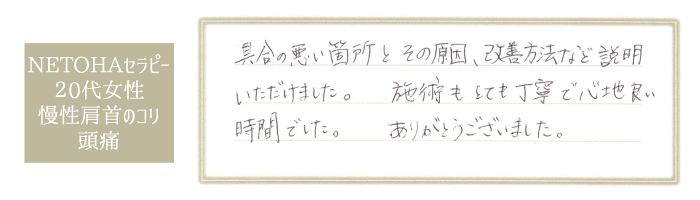 NETOHAセラピー
20代女性
慢性肩首のコリ
頭痛
具合の悪い箇所と その原因、改善方法など説明
いただけました。 施術もとても丁寧で心地良い
時間でした。 ありがとうございました。